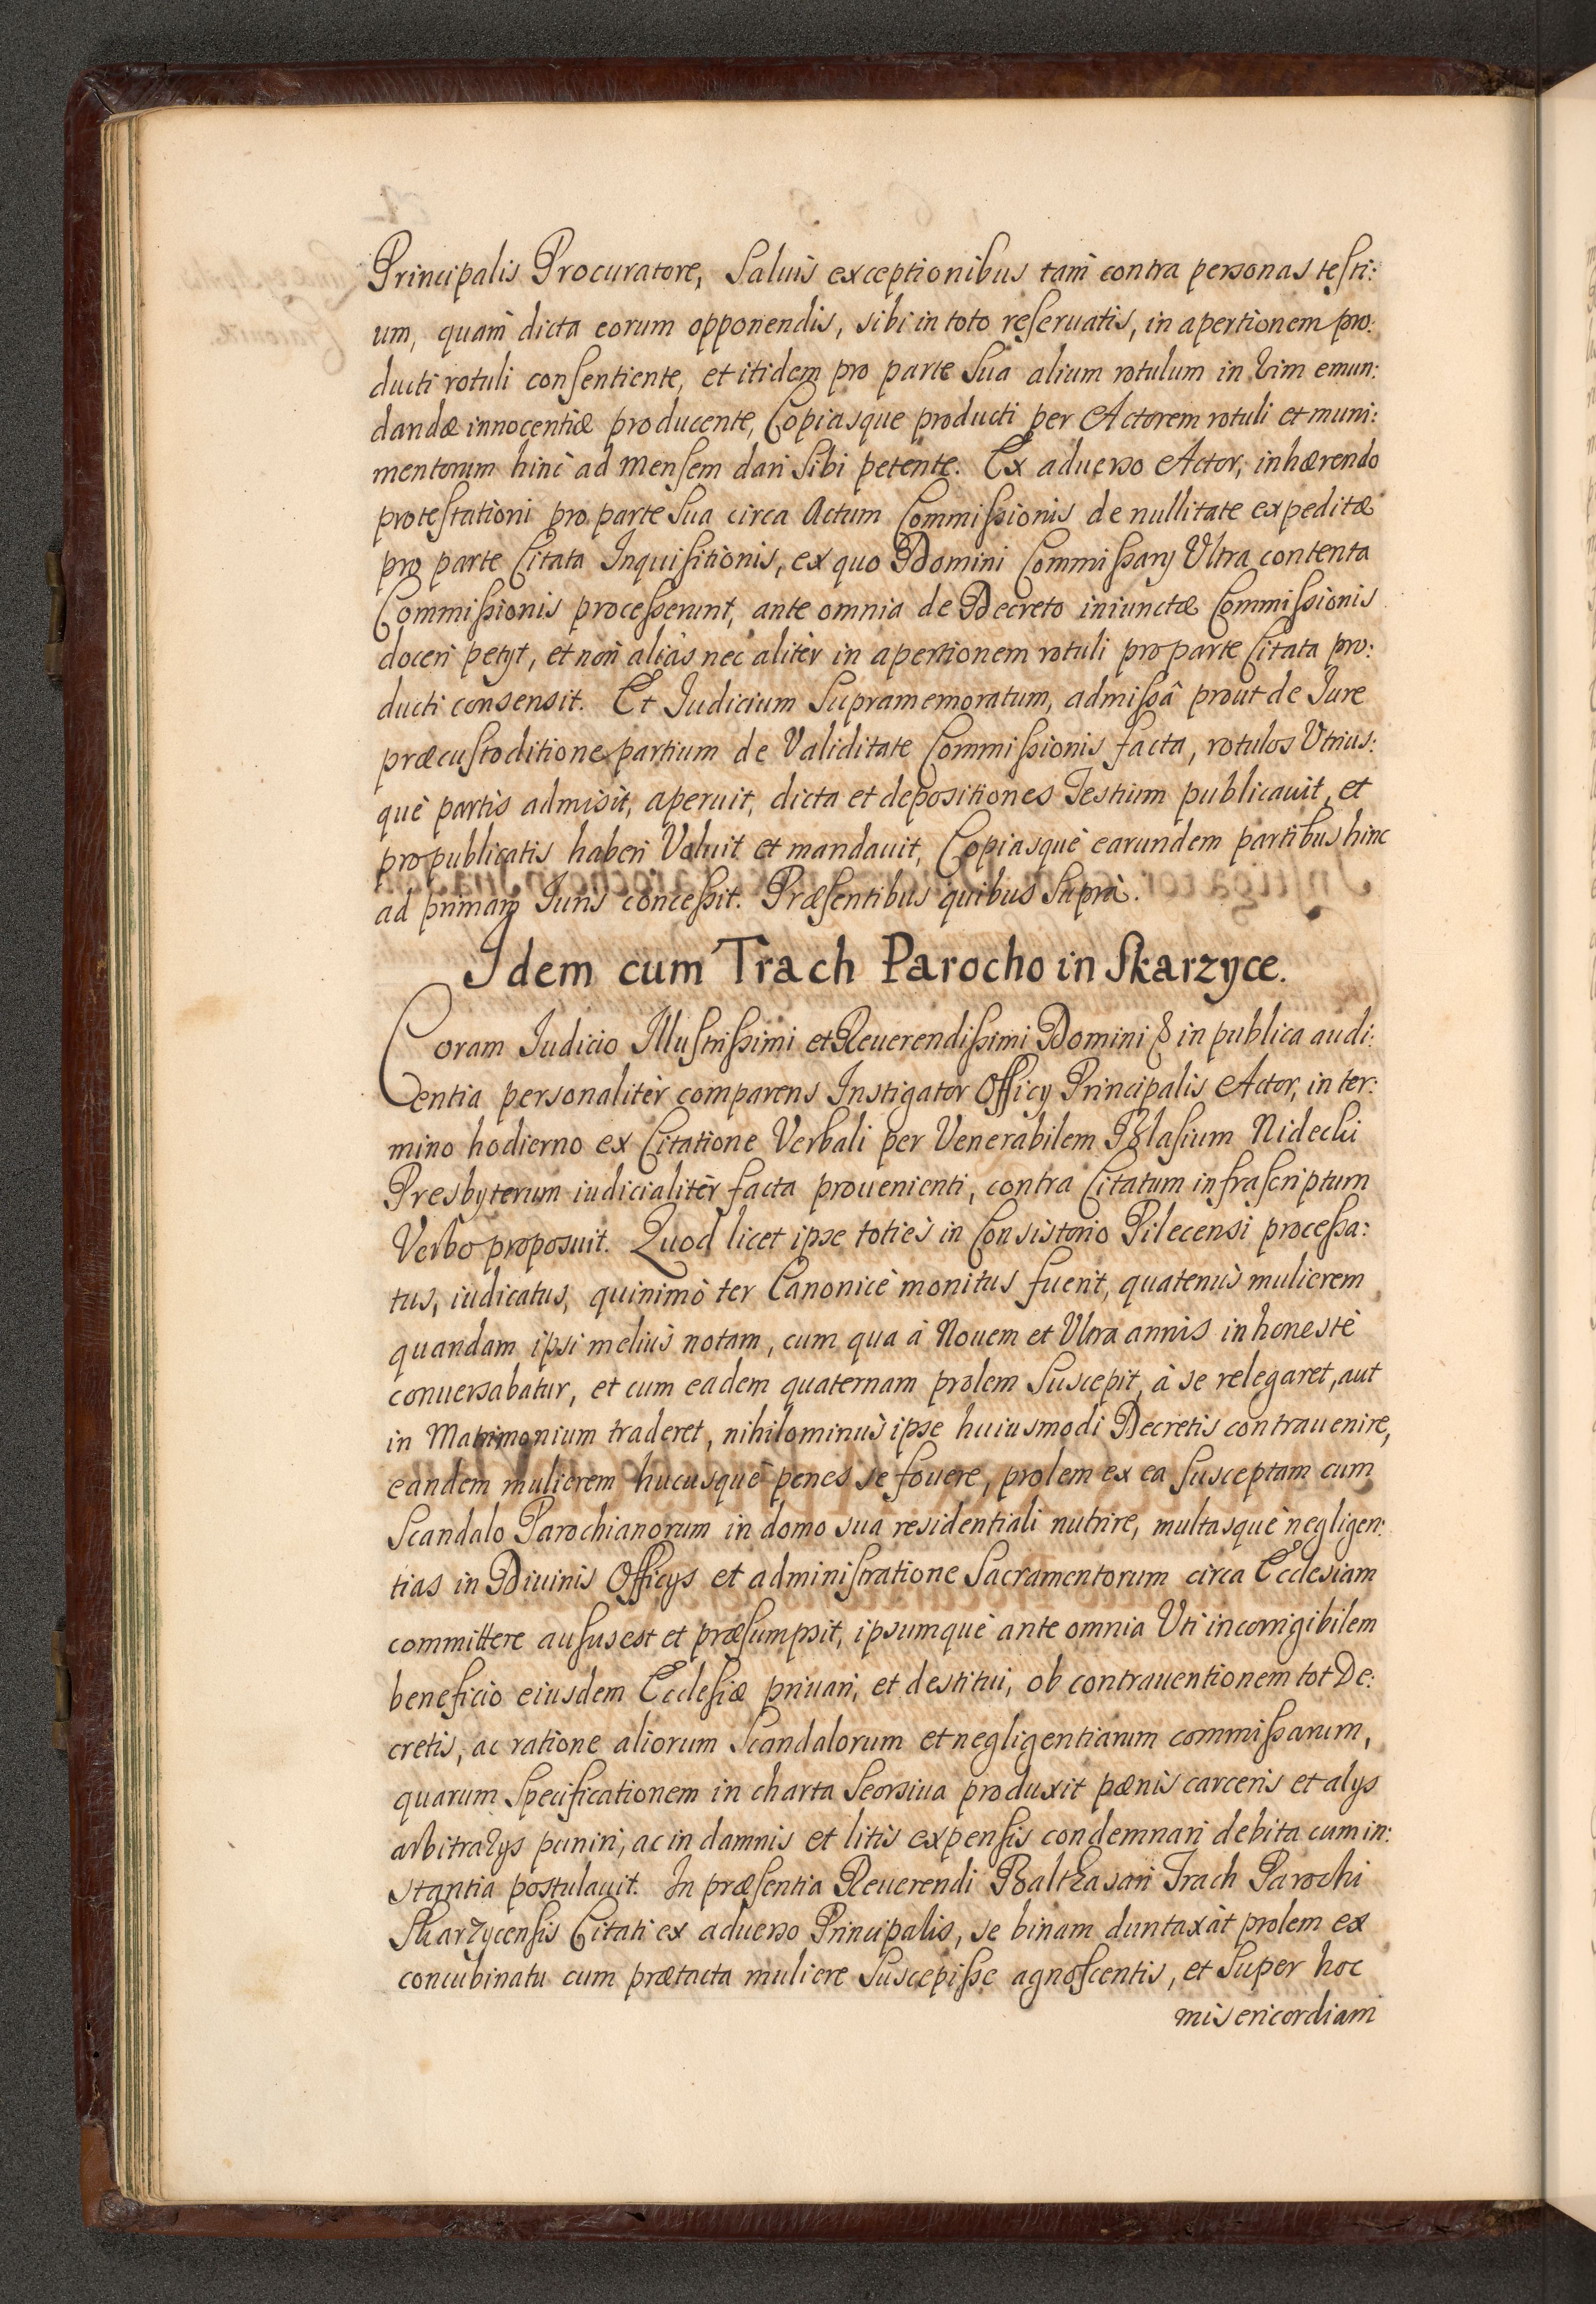 Principalis Procuratore, Saluis exceptionibus tam contra personas testi:
um, quam dicta eorum opponendis, sibi in toto reseruatis, in apertionem pro:
ducti rotuli consentiente, et itidem pro parte Sua alium rotulum in Vim emun:
dandæ innocentiæ producente, Copiasque producti per Actorem rotuli et muni:
mentorum hinc ad Mensem dari Sibi petente. Ex aduerso Actor, inhærendo
protestationi pro parte Sua circa Actum Commissionis de nullitate expeditæ
pro parte Citata Inquisitionis, ex quo Domini Commissarij Vltra contenta
Commissionis processerunt, ante omnia de Decreto iniunctæ Commissionis
doceri petyt, et non aliàs nec alitèr in apertionem rotuli pro parte Citata pro:
ducti consensit. Et Iudicium Supramemoratum, admissâ prout de Iure
præcustoditione partium de Validitate Commissionis facta, rotulos Vtrius:
què partis admisit, aperuit, dicta et depositiones Testium publicauit, et
pro publicatis haberi Voluit et mandauit, Copiasquè earundem partibus hinc
ad primam Iuris concessit. Præsentibus quibus Suprà.
Idem cum Trach Parocho in Skarzyce.
Coram Iudicio Illustrissimi et Reuerendissimi Domini & in publica audi:
entia personalitèr comparens Instigator Officij Principalis Actor, in ter:
mino hodierno ex Citatione Verbali per Venerabilem Blasium Nidecki
Presbyterum iudicialitèr facta prouenienti, contra Citatum infrascriptum
Verbo proposuit. Quod licet ipse toties in Consistorio Pilecensi processa:
tus, iudicatus, quinimò ter Canonicè monitus fuerit, quatenùs mulierem
quandam ipsi meliùs notam, cum qua à Nouem et Vltra annis inhonestè
conuersabatur, et cum eadem quaternam prolem Suscepit, à se relegaret, aut
in Matrimonium traderet, nihilominùs ipse huiusmodi Decretis contrauenire,
eandem mulierem hucusquè penes se fouere, prolem ex ea susceptam cum
Scandalo Parochianorum in domo sua residentiali nutrire, multasquè negligen:
tias in Diuinis Officys et administratione Sacramentorum circa Ecclesiam
committere ausus est et præsumpsit, ipsumquè ante omnia Vti incorrigibilem
beneficio eiusdem Ecclesiæ priuari, et destitui, ob contrauentionem tot De:
cretis, ac ratione aliorum Scandalorum et negligentiarum commissarum,
quarum Specificationem in charta Seorsiua produxit pænis carceris et alys
arbitralys puniri, ac in damnis et litis expensis condemnari debita cum in:
stantia postulauit. In præsentia Reuerendi Balthasari Trach Parochi
Skarzycensis Citati ex aduerso Principalis, se binam duntaxàt prolem ex
concubinatu cum prætacta muliere Suscepisse agnoscentis, et Super hoc
misericordiam